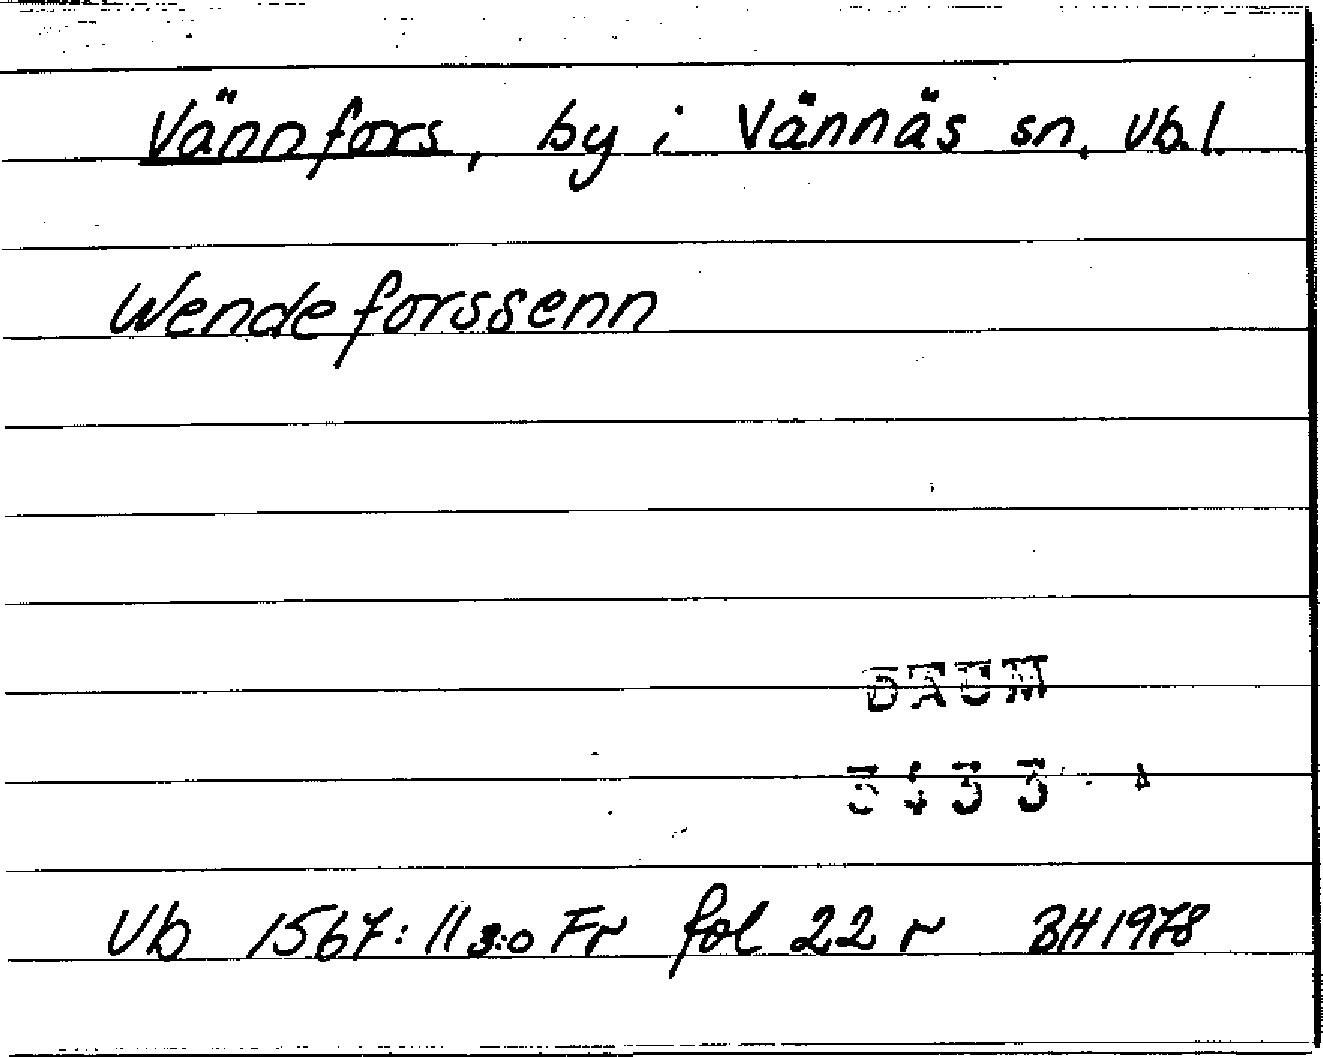 Vännfors, by i Vännäs sn, Vb.l.
Wendeforssenn
DAUM
Vb 1567: 11 3:o Fr fol 22 r BH 1978